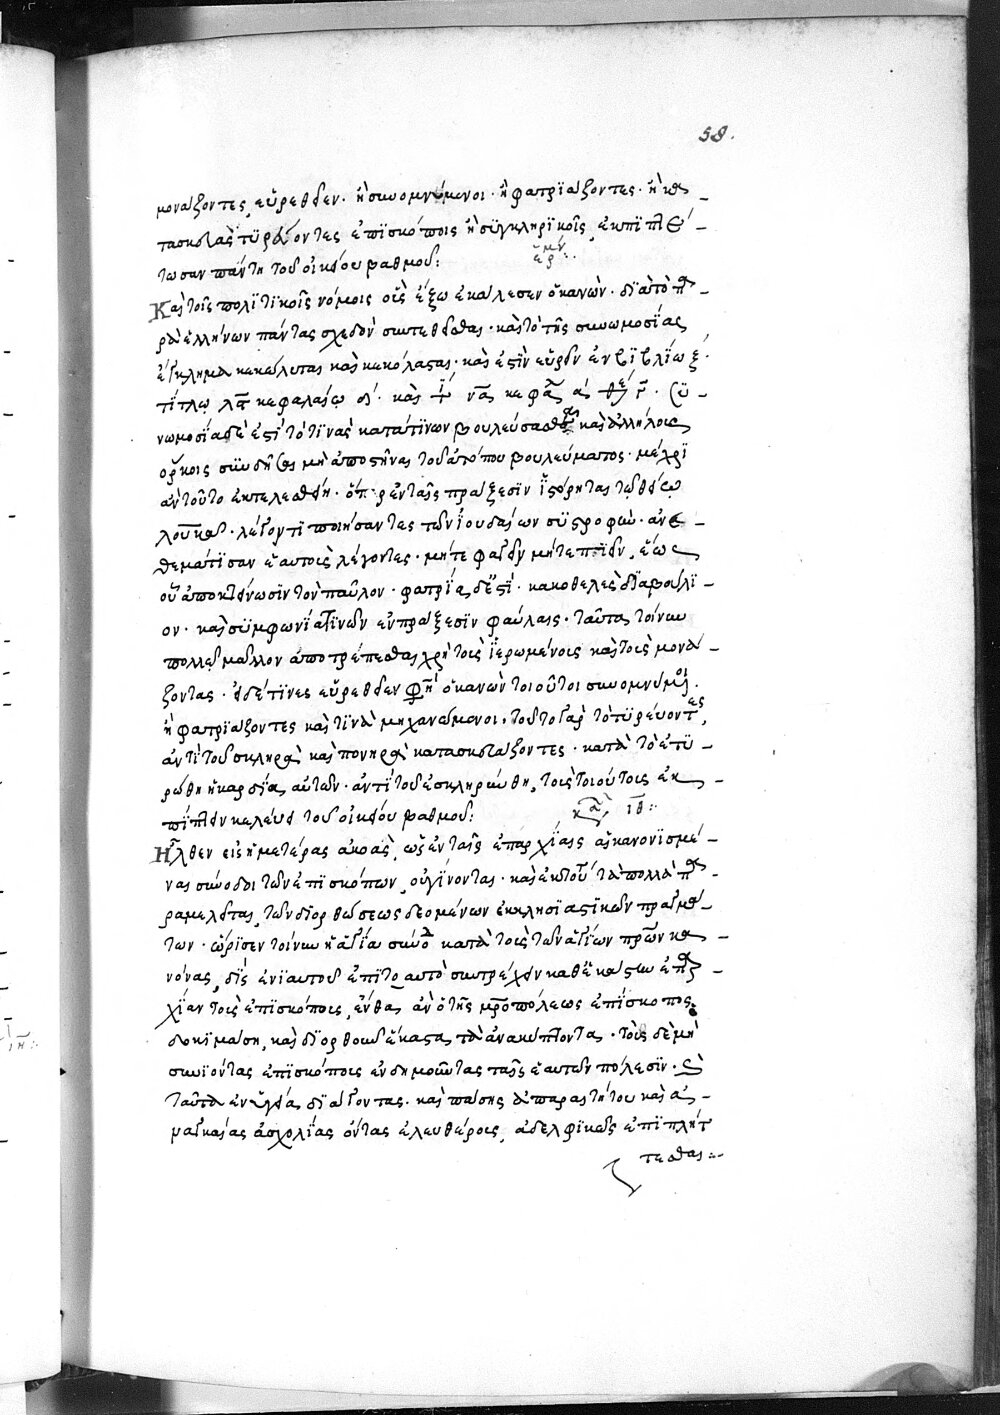 58.
μονάζοντες εὑρεθεῖεν· ἢ συνομνύμενοι· ἢ φατριάζοντες· ἢ κα
τασκευὰς τυρεύοντες ἐπισκόποις ἢ συγκληρικοῖς, ἐκπιπτέ
τωσαν πάντη τοῦ οἰκείου βαθμοῦ:
ἑρμην:
Καὶ τοῖς πολιτικοῖς νόμοις οὓς ἔξω ἐκάλεσεν ὁ κανών· διὰ τὸ πα
ρὰ ἑλλήνων πάντας σχεδὸν συντεθεῖσθαι· καὶ τὸ τῆς συνωμοσίας
ἔγκλημα κεκώλυται καὶ κεκόλασται· καὶ ἔστιν εὑρεῖν ἐν βιβλίω ξ
τίτλω λϛ κεφαλαίω
νωμοσία δέ ἐστι τὸ τινὰς κατά τινων βουλεύσασθαι καὶ ἀλλήλοις
ὅρκοις συνδῆσαι μὴ ἀποστῆναι τοῦ ἀτόπου βουλεύματος· μέχρι
ἂν τοῦτο ἐκτελεσθείη· ὅπερ ἐν ταῖς πράξεσιν ἱστόρηται τῶ θείω
λουκᾶ· λέγοντι ποιήσαντες τῶν ἰουδαίων συστροφὴν· ἀνε
θεμάτισαν ἑαυτοὺς λέγοντες· μήτε φαγεῖν μήτε πιεῖν, ἕως
οὗ ἀποκτείνωσιν τὸν παῦλον· φατρία δέ ἐστι· κακοθελὲς διαβούλι
ον· καὶ συμφωνία τινῶν ἐν πράξεσιν φαύλαις· ταῦτα τοίνυν
πολλῶ μᾶλλον ἀποτρέπεσθαι χρὴ τοὺς ἱερωμένοις καὶ τοὺς μονά
ζοντας· εἰ δέ τινες εὑρεθεῖεν φησὶν ὁ κανὼν τοιοῦτοι συνομνύμενοι·
ἢ φατριάζοντες καί τινα μηχανώμενοι· τοῦτο γὰρ τὸ τυρεύοντες,
ἀντὶ τοῦ σκληρὰ καὶ πονηρὰ κατασκευάζοντες· κατὰ τὸ ἐτυ
ρώθη ἡ καρδία αὐτῶν· ἀντὶ τοῦ ἐσκληρώθη, τοὺς τοιούτους ἐκ
πίπτειν κελεύει τοῦ οἰκείου βαθμοῦ:
κα ιθ:
Ἦλθεν εἰς ἡμετέρας ἀκοάς, ὡς ἐν ταῖς ἐπαρχίαις αἱ κανονισμέ
ναι σύνοδοι τῶν ἐπισκόπων, οὐ γίνονται· καὶ ἐκ τούτου τὰ πολλὰ πα
ραμελεῖται, τῶν διορθώσεως δεομένων ἐκκλησιαστικῶν πραγμά
των· ὥρισεν τοίνυν ἡ ἁγία σύνοδος κατὰ τοὺς τῶν ἁγίων πρῶν κα
νόνας, δὶς ἐνιαυτοῦ ἐπιτοαυτὸ συντρέχειν καθ' ἑκάστην ἐπαρ
χίαν τοὺς ἐπισκόπους, ἔνθα ἂν ὁ τῆς μροπόλεως ἐπίσκοπος
δοκιμάση, καὶ διορθοῦν ἕκαστα τὰ ἀνακύπτοντα· τοὺς δὲ μὴ
συνιόντας ἐπισκόπους ἐνδημοῦντας ταῖς ἑαυτῶν πόλεσιν· καὶ
ταῦτα ἐν ὑγεία διάγοντας· καὶ πάσης ἀπαραιτήτου καὶ ἀ
ναγκαίας ἀσχολίας ὄντας ἐλευθέρους, ἀδελφικῶς ἐπιπλήτ
τεσθαι: